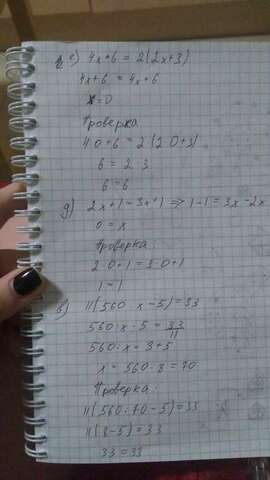 е) 4x+6 = 2(2x+3)
4x+6 = 4x+6
x=0
Проверка
4·0+6 = 2(2·0+3)
6 = 2·3
6=6
д) 2x+1=3x+1 => 1-1=3x-2x
0=x
Проверка:
2·0+1=3·0+1
1=1
в) 11(560:x-5)=33
560:x-5=33/11
560:x=3+5
x=560:8=70
Проверка:
11(560:70-5)=33
11(8-5)=33
33=33